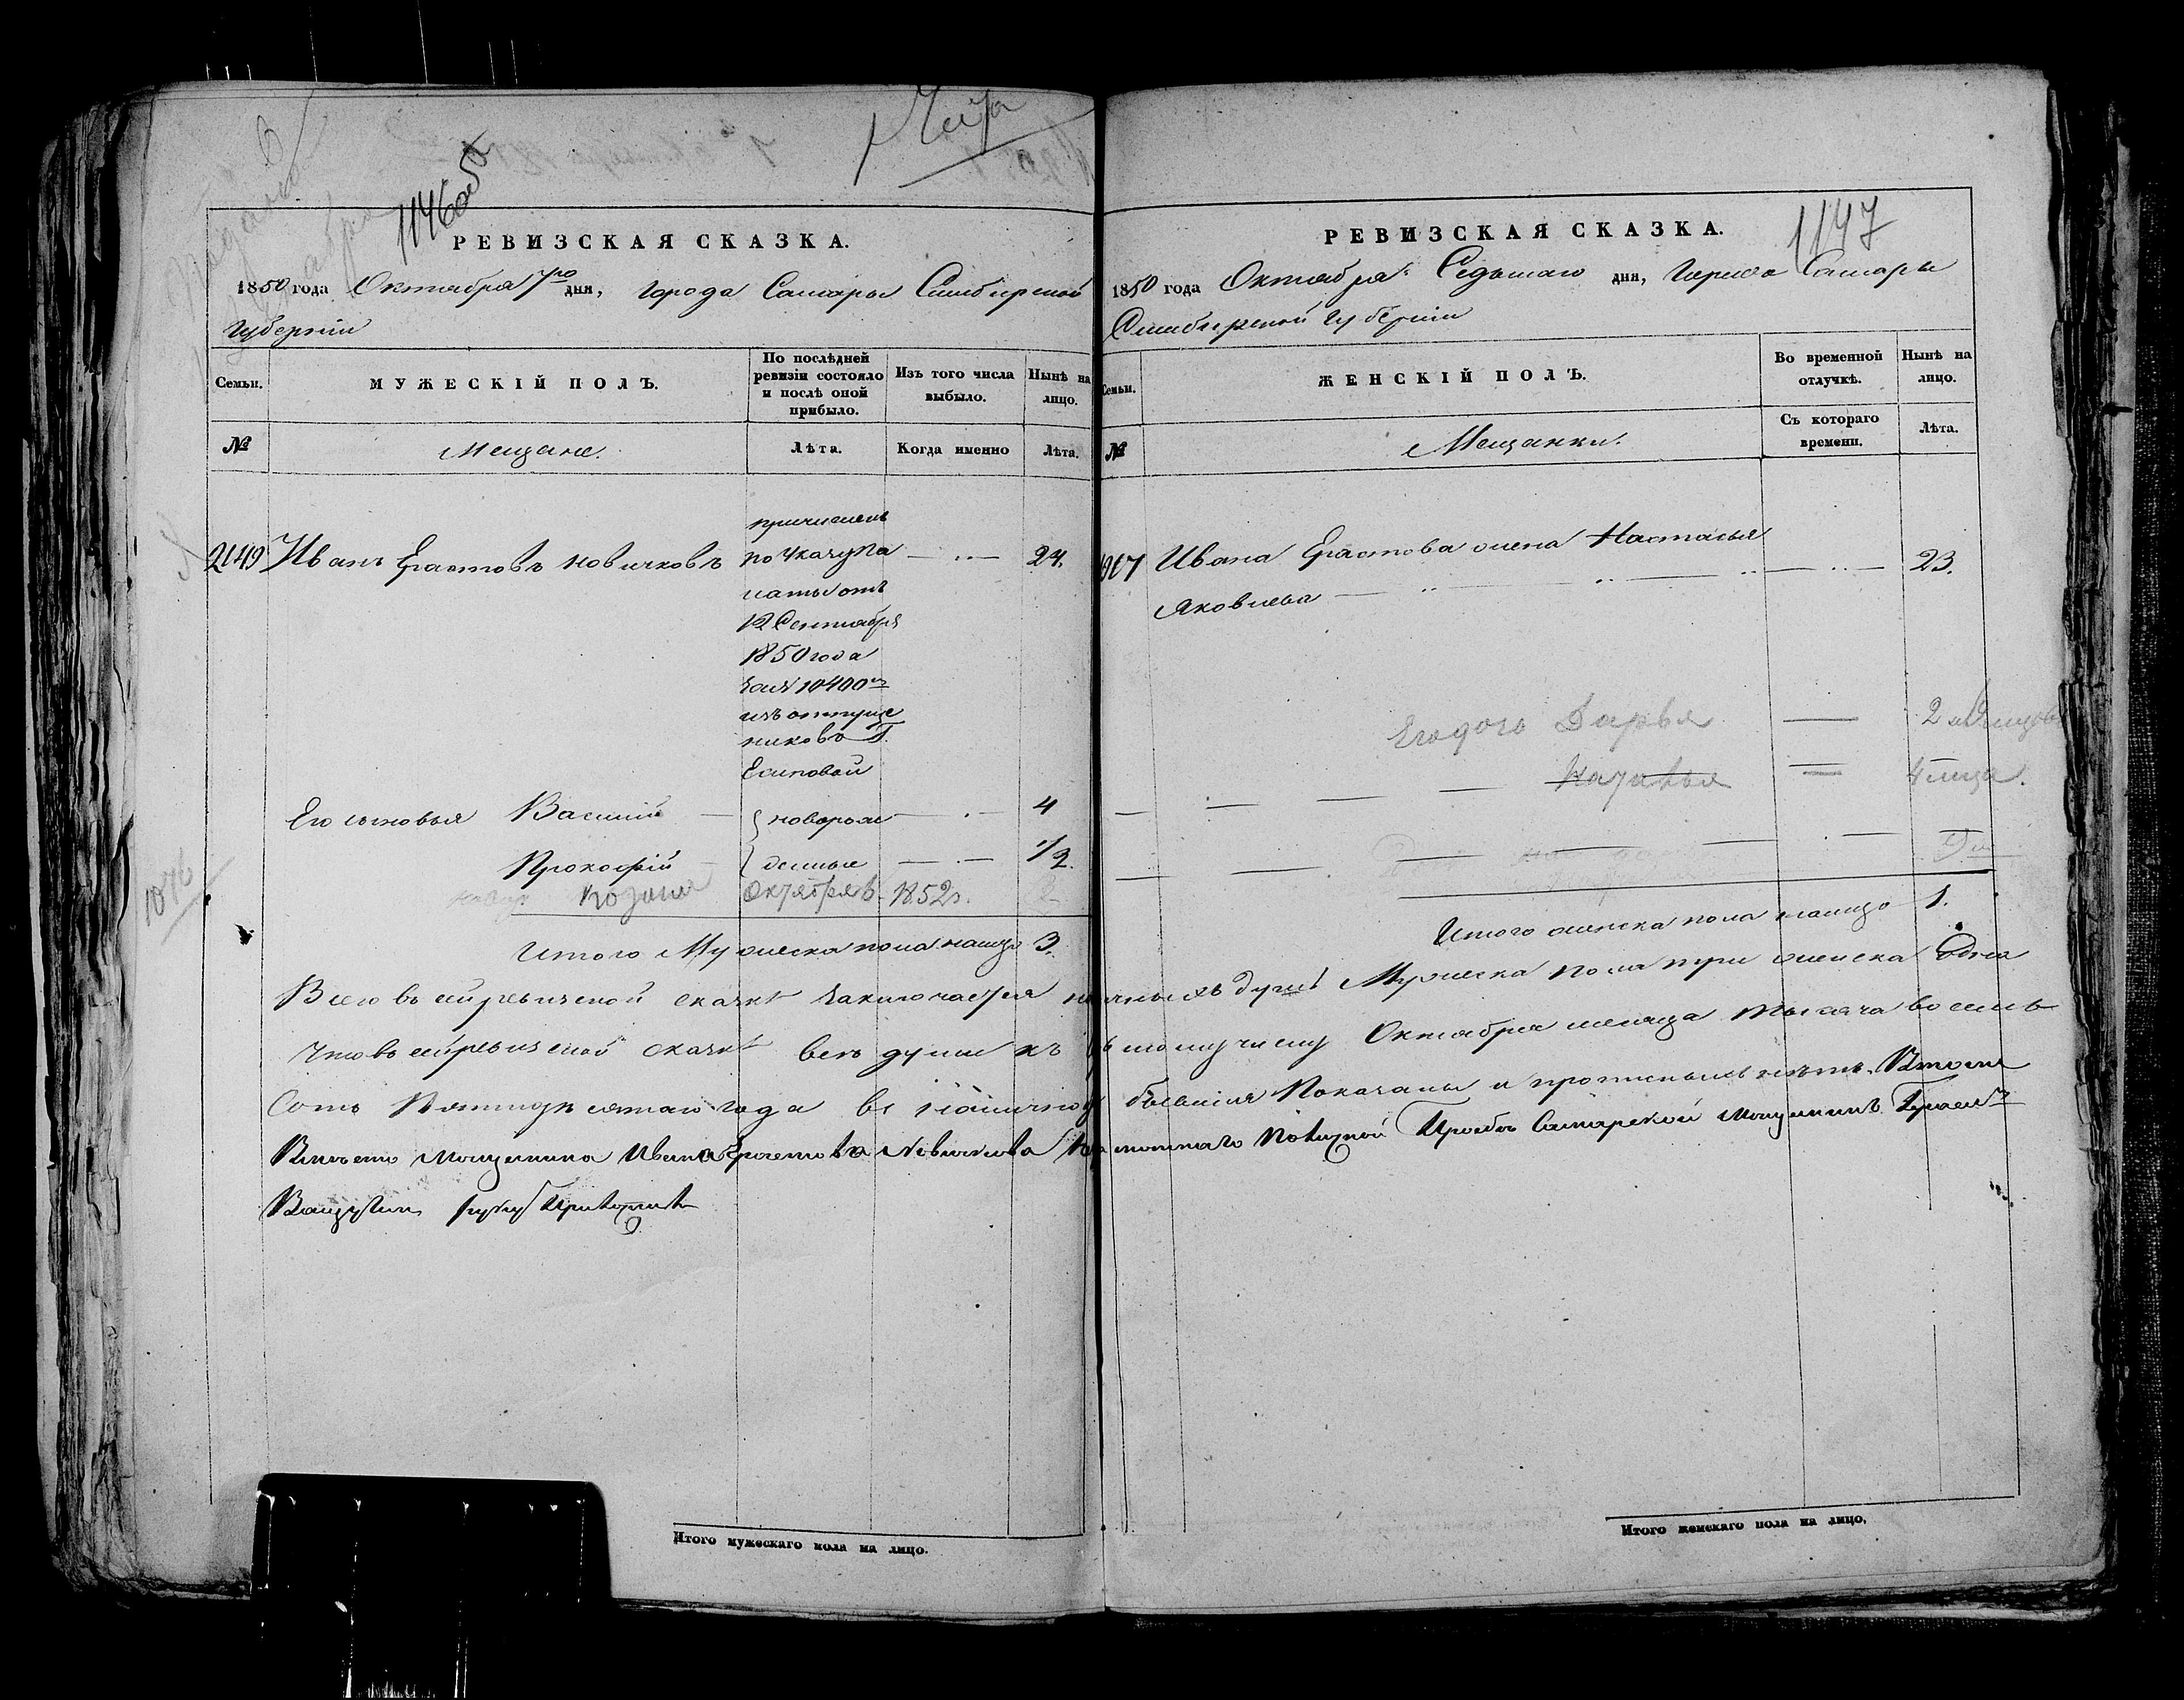 1146об
РЕВИЗСКАЯ СКАЗКА.
1850 года Октября 7го дня, города Самары Симбирской
Губерніи
Семьи.
МУЖЕСКІЙ ПОЛЪ.
По послѣдней
ревизіи состояло
и послѣ оной
прибыло.
Изъ того числа
выбыло.
Нынѣ на
лицо.
№
Мещане.
Лѣта.
Когда именно
Лѣта.
2149 Иванъ Ерастовъ Новичковъ
причисленъ
по Указу Па
латы отъ
12 Сентября
1850 года
за № 10400м
изъ отпуще
никовъ Г.
Есиповой
24.
Его сыновья Василій
новорож
4
Прокофій
денные
1/2
Октября 1852г.
Итого Мужеска пола налицо 3.
1147
РЕВИЗСКАЯ СКАЗКА.
1850 года Октября Седьмаго дня, Города Самары
Симбирской Губерніи
Семьи.
ЖЕНСКІЙ ПОЛЪ.
Во временной
отлучкѣ.
Нынѣ на
лицо.
№
Мещанки.
Съ котораго
времени.
Лѣта.
Ивана Ерастова жена Настасья
Яковлева
23.
Его дочь Дарья
2
Итого женска пола налицо 1.
Всего въ сей ревизской сказкѣ заключается наличныхъ душъ Мужеска пола три женска Одна
Что въ сей ревизской сказкѣ всѣ души къ 7му числу Октября месяца тысяча восемь
Сотъ Пятидесятаго года въ наличности бывшія Показаны и прописныхъ нѣтъ. Въ томъ
Вмѣсто мещанина Ивана Ерастова Новичкова Неграмотнаго По личной Просьбѣ Самарской мещанинъ
руку Приложилъ
Итого мужескаго пола на лицо.
Итого женскаго пола на лицо.